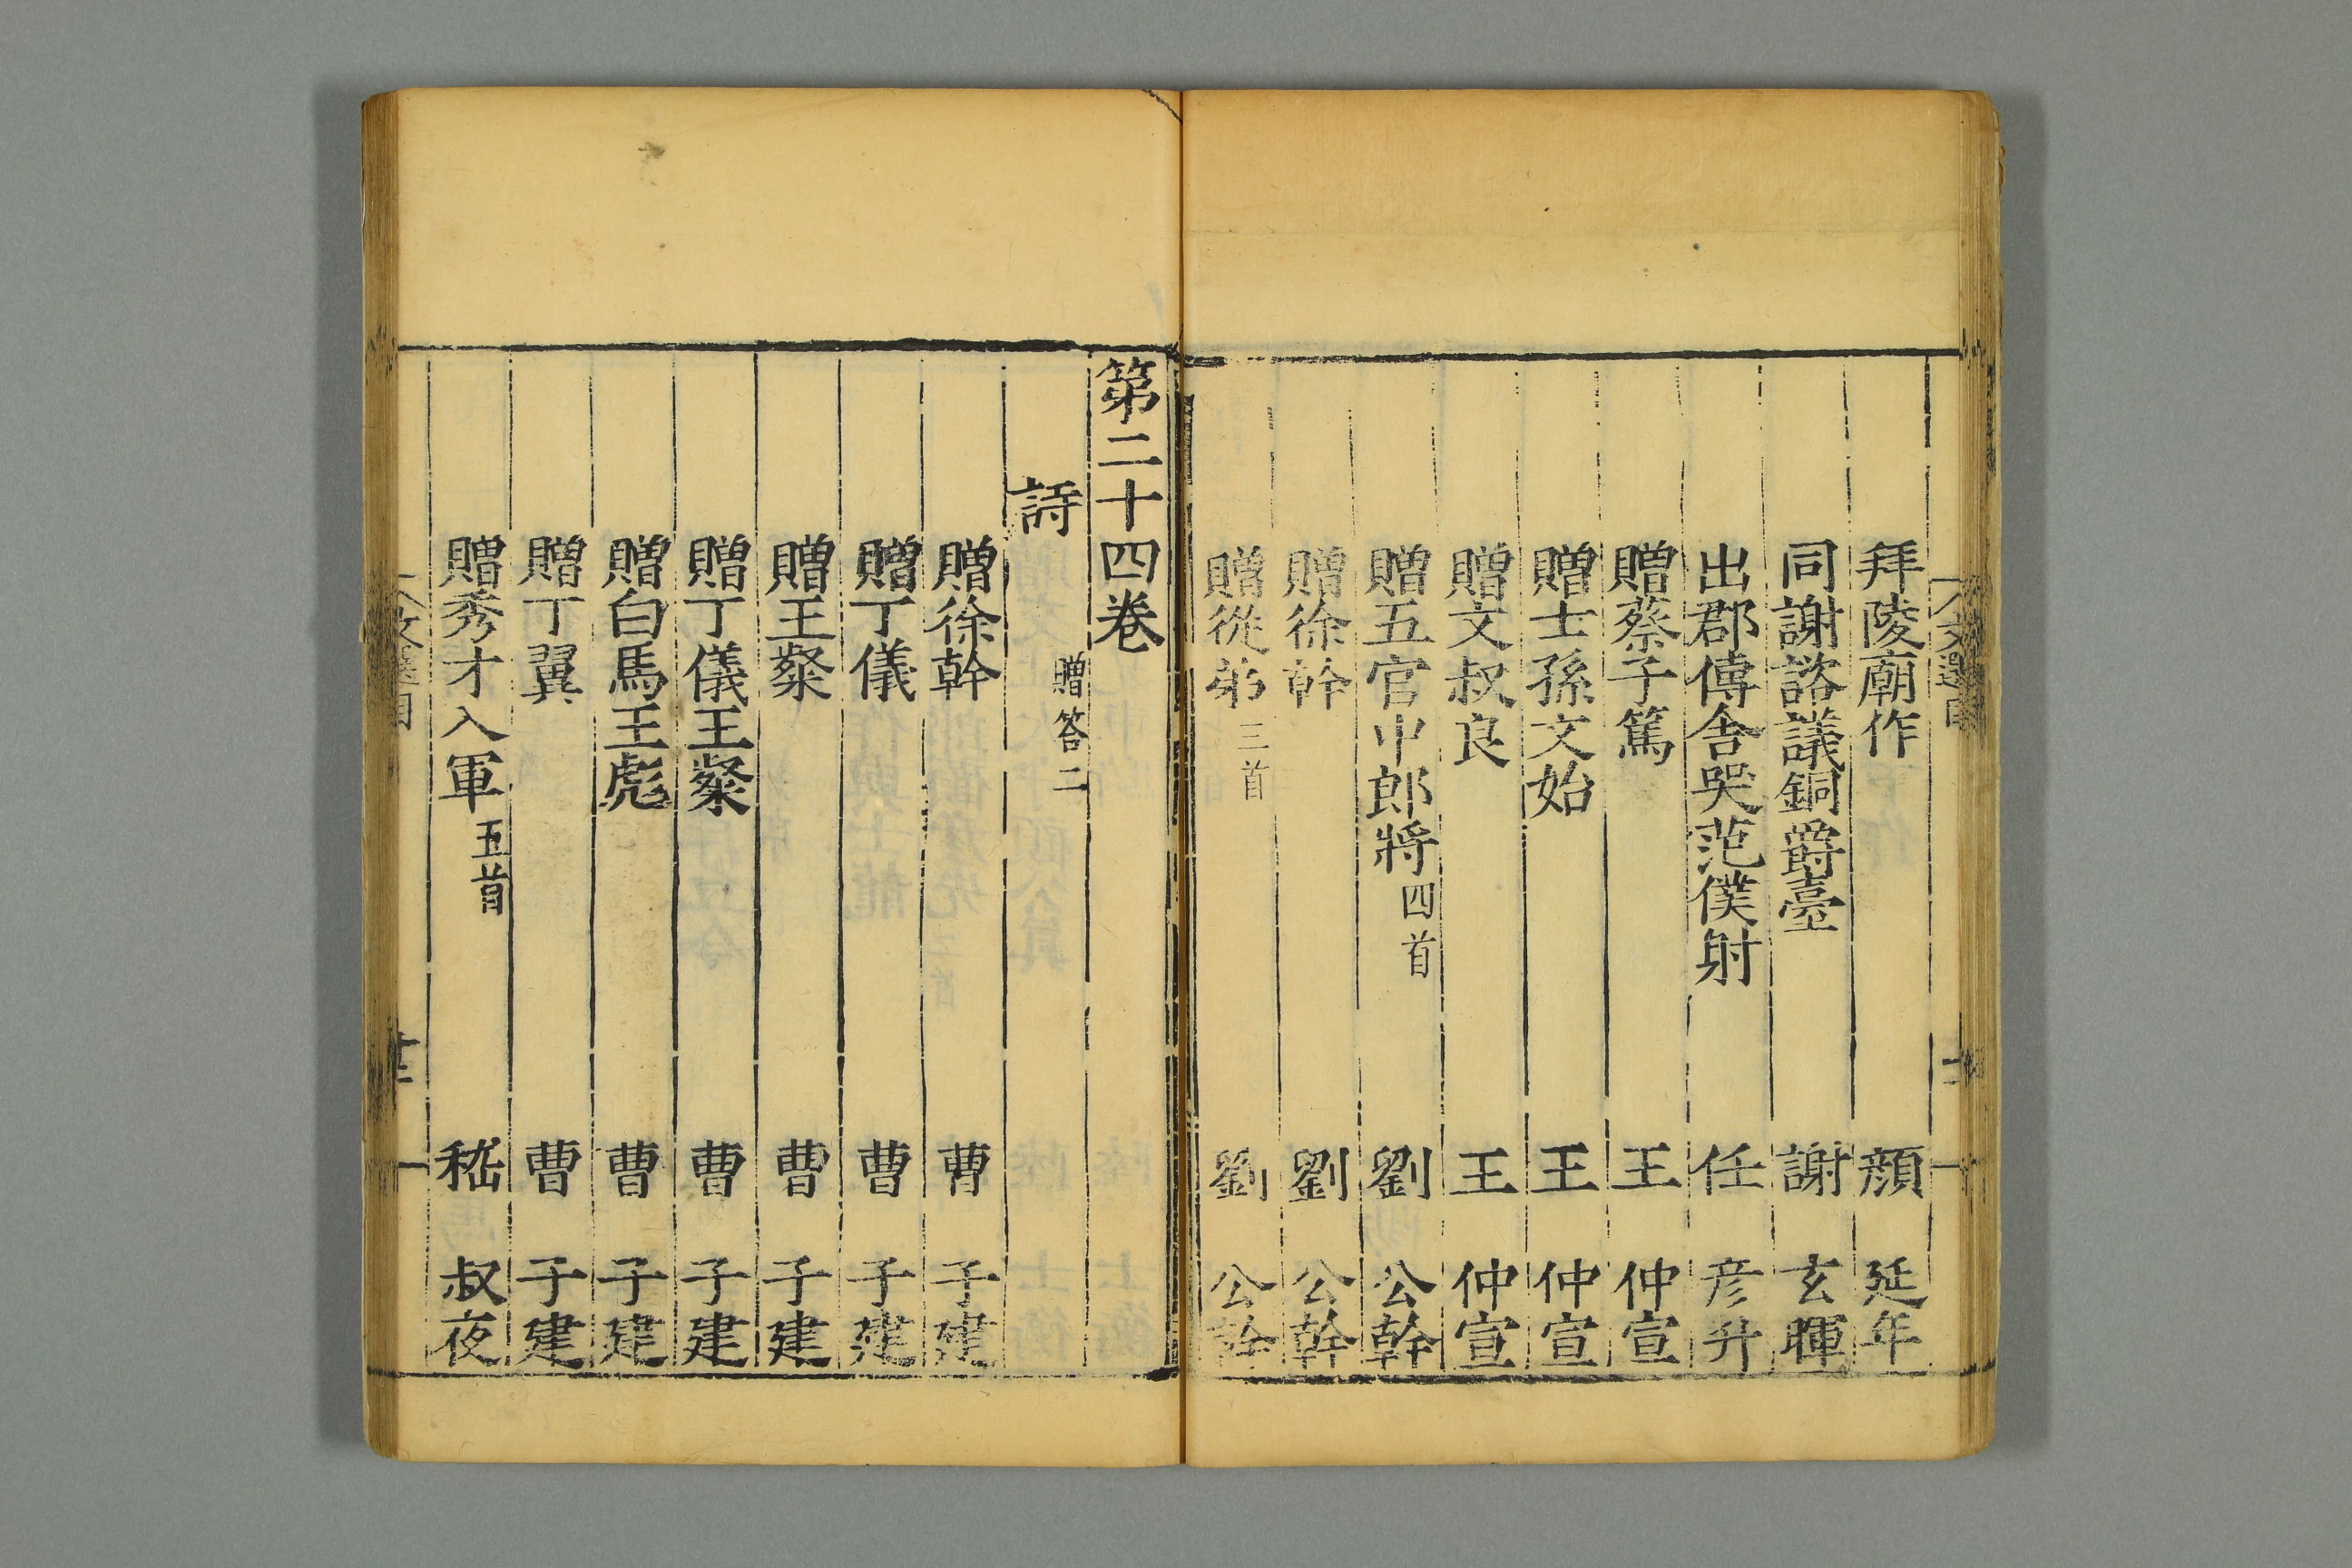 拜陵廟作 顏延年
同謝諮議銅爵臺 謝玄暉
出郡傳舍哭范僕射 任彦升
贈蔡子篤 王仲宣
贈士孫文始 王仲宣
贈文叔良 王仲宣
贈五官中郎將四首 劉公幹
贈徐幹 劉公幹
贈從弟三首 劉公幹
第二十四卷
詩 贈答二
贈徐幹 曹子建
贈丁儀 曹子建
贈王粲 曹子建
贈丁儀王粲 曹子建
贈白馬王彪 曹子建
贈丁翼 曹子建
贈秀才入軍五首 嵇叔夜